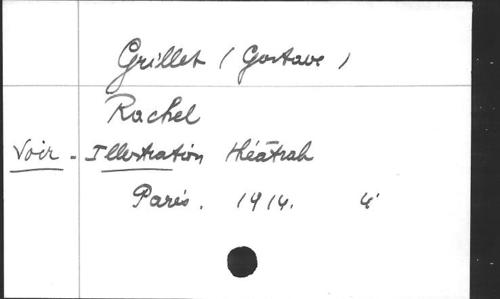 Grillet (Gustave)
Rachel
Voir - Illustration théâtrale
Paris. 1914. 4°